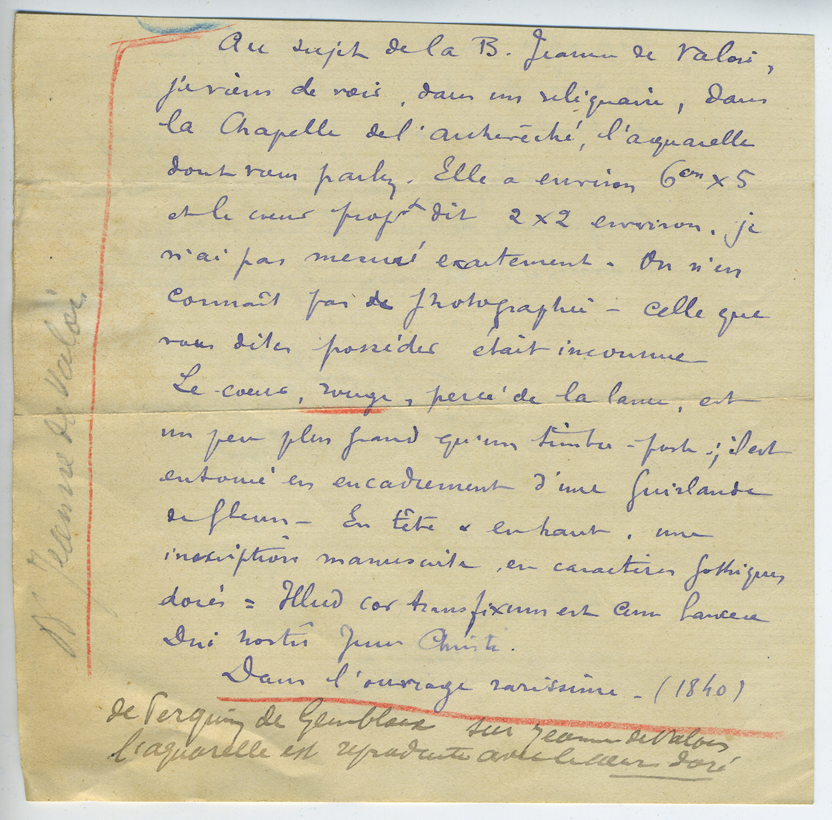 Au sujet de la B. Jeanne de Valois,
je viens de voir, dans un reliquaire, dans
la Chapelle de l'archevêché, l'acquarelle
dont vous parlez. Elle a environ 6cm x 5
et le cœur propt dit 2 x 2 environ. je
n'ai pas mesuré exactement - On n'en
connaît pas de photographie - celle que
vous dites posséder était inconnue
Le cœur, rouge, percé de la lance, est
un peu plus grand qu'un timbre-poste; il est
entouré en encadrement d'une Guirlande
de fleurs - En tête & en haut, une
inscription manuscrite, en caractères gothiques
dorés = Illud cor transfixum est cum lancea
Dni nostri Jesu Christi.
Dans l'ouvrage rarissime - (1840)
de Pierquin de Gembloux sur Jeanne de Valois
l'aquarelle est reproduite avec le cœur doré
Jeanne de Valois